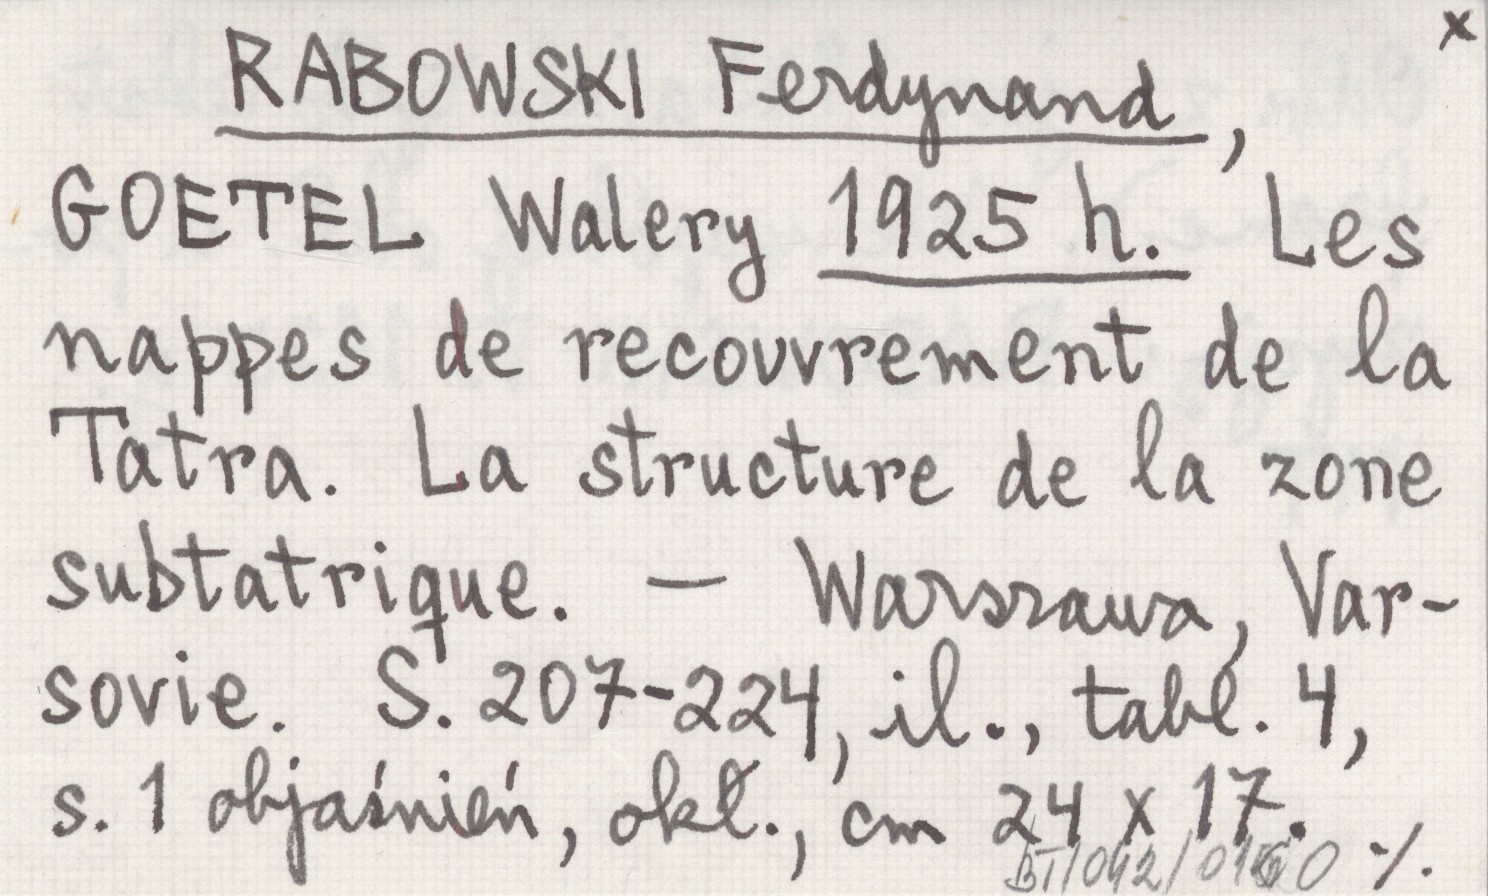 x
RABOWSKI Ferdynand,
GOETEL Walery 1925 h. Les
nappes de recouvrement de la
Tatra. La structure de la zone
subtatrique. — Warszawa, Var-
sovie. S. 207-224, il., tabl. 4,
s. 1 objaśnień, okł., cm 24 x 17.
·/.